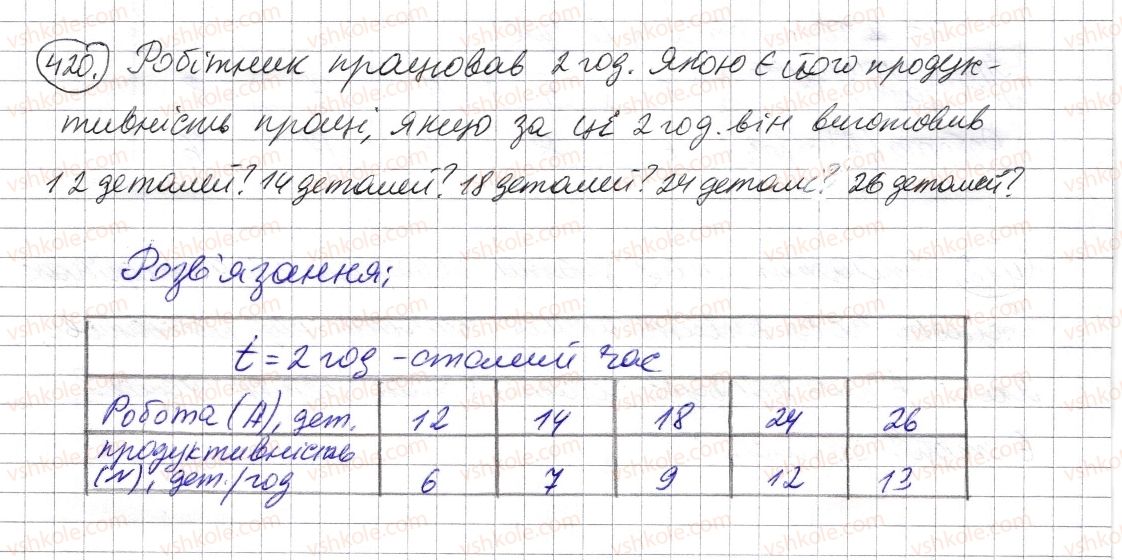 420. Робітник працював 2 год. Якою є його продук-
тивність праці, якщо за ці 2 год. він виготовив
12 деталей? 14 деталей? 18 деталей? 24 деталі? 26 деталей?
Розв'язання:
t = 2 год - сталий час
Робота (А), дет. 12 14 18 24 26
продуктивність
(N), дет./год 6 7 9 12 13